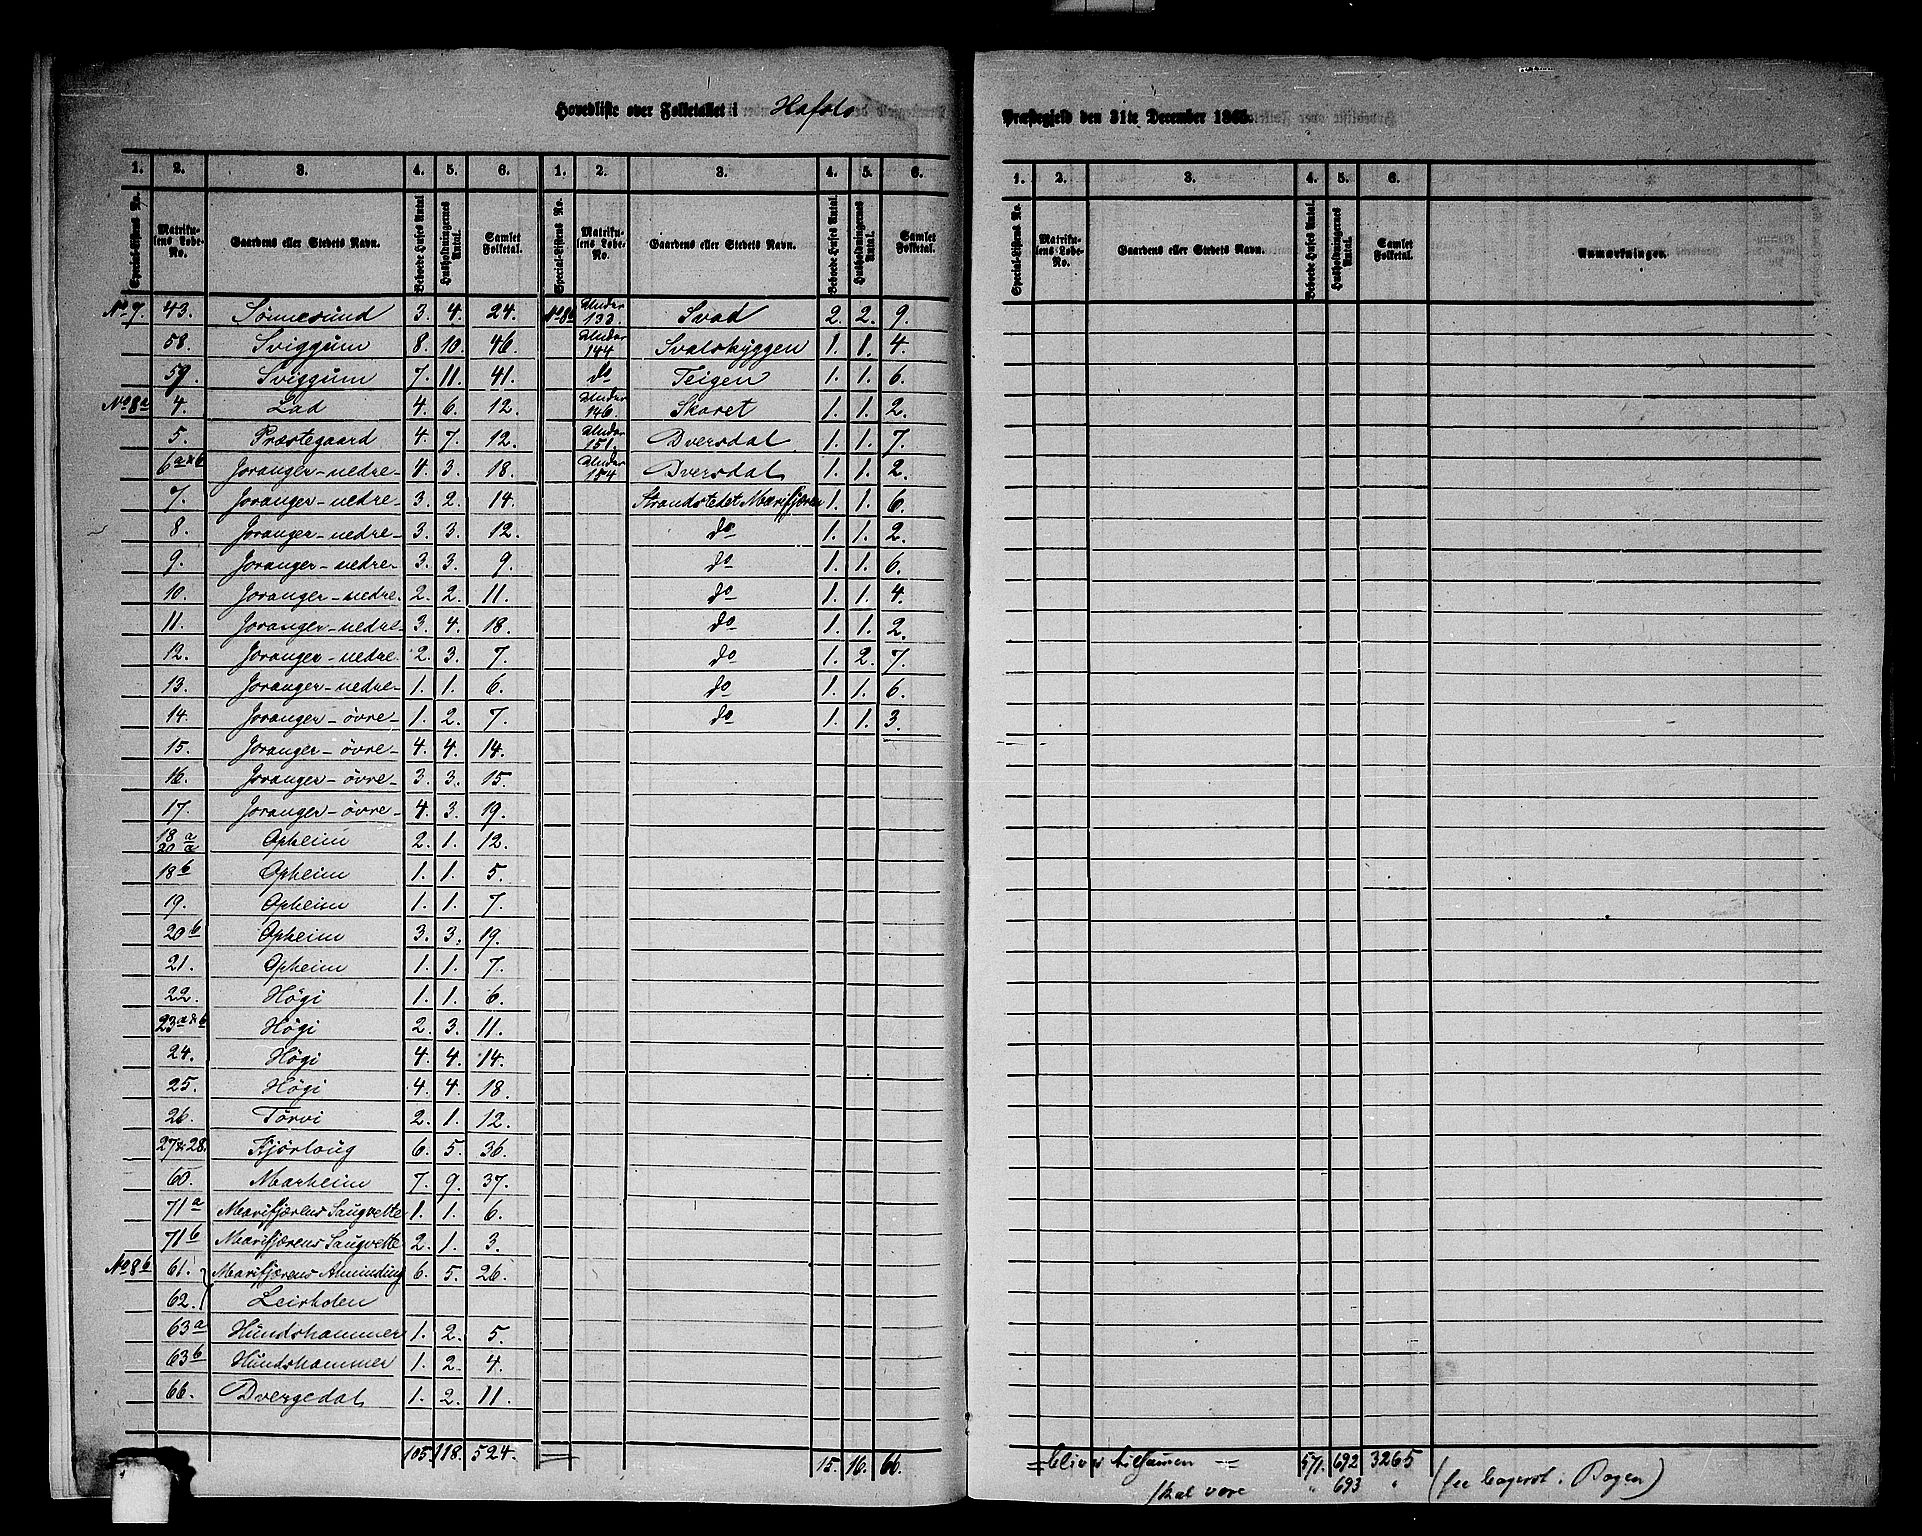 Hovedliste over Folketallet i Hafslo
Præstegjeld den 31te December 1865.
1. 2. 3. 4. 5. 6. 1. 2. 3. 4. 5. 6.
Special-Listens No. Matrikulens Løbe-No. Gaardens eller Stedets Navn. Beboede Huses Antal Husholdningernes Antal. Samlet Folketal. Special-Listens No. Matrikulens Løbe-No. Gaardens eller Stedets Navn. Beboede Huses Antal. Husholdningernes Antal. Samlet Folketal.
No 7. 43. Sønnesund 3. 4. 24. No 8b Under 133. Svad 2. 2. 9.
58. Sviggum 8. 10. 46. Under 144 Svalskyggen 1. 1. 4.
59. Sviggum 7. 11. 41. do Teigen 1. 1. 6.
No 8a 4. Lad 4. 6. 12. Under 146. Skaret 1. 1. 2.
5. Præstegaard 4. 7. 12. Under 151. Dversdal 1. 1. 7.
6a&b Joranger-nedre- 4. 3. 18. Under 154 Dversdal 1. 1. 2.
7. Joranger-nedre- 3. 2. 14. Strandstedet Marifjæren 1. 1. 6.
8. Joranger-nedre- 3. 3. 12. do 1. 1. 2.
9. Joranger-nedre 3. 3. 9. do 1. 1. 6.
10. Joranger-nedre. 2. 2. 11. do 1. 1. 4.
11. Joranger-nedre- 3. 4. 18. do 1. 1. 2.
12. Joranger-nedre. 2. 3. 7. do 1. 2. 7.
13. Joranger-nedre- 1. 1. 6. do 1. 1. 6.
14. Joranger-øvre- 1. 2. 7. do 1. 1. 3.
15. Joranger-øvre- 4. 4. 14.
16. Joranger-øvre- 3. 3. 15.
17. Joranger-øvre- 4. 3. 19.
18a 20a Opheim 2. 1. 12.
18b Opheim 1. 1. 5.
19. Opheim 1. 1. 7.
20b Opheim 3. 3. 19.
21. Opheim 1. 1. 7.
22. Høgi 1. 1. 6.
23a&b Høgi 2. 3. 11.
24. Høgi 4. 4. 14.
25. Høgi 4. 4. 18.
26. Tørvi 2. 1. 12.
27&28. Kjørloug 6. 5. 36.
60. Marheim 7. 9. 37.
71a Marifjærens Saugvette 1. 1. 6.
71b Marifjærens Saugvette 2. 1. 3.
No 8b 61. Marifjærens Alminding 6. 5. 26.
62. Leirholen
63a Hundshammer 1. 2. 5.
63b Hundshammer 1. 2. 4.
66. Dvergedal 1. 2. 11.
105. 118. 524. 15. 16. 66.
1. 2. 3. 4. 5. 6. 7.
Special-Listens No. Matrikulens-Løbe-No. Gaardens eller Stedets Navn. Beboede Huses Antal. Husholdningernes Antal. Samlet Folketal. Anmærkninger.
bliver tilsammen 571. 692 3265
skal være " 693 " (se Bogen)